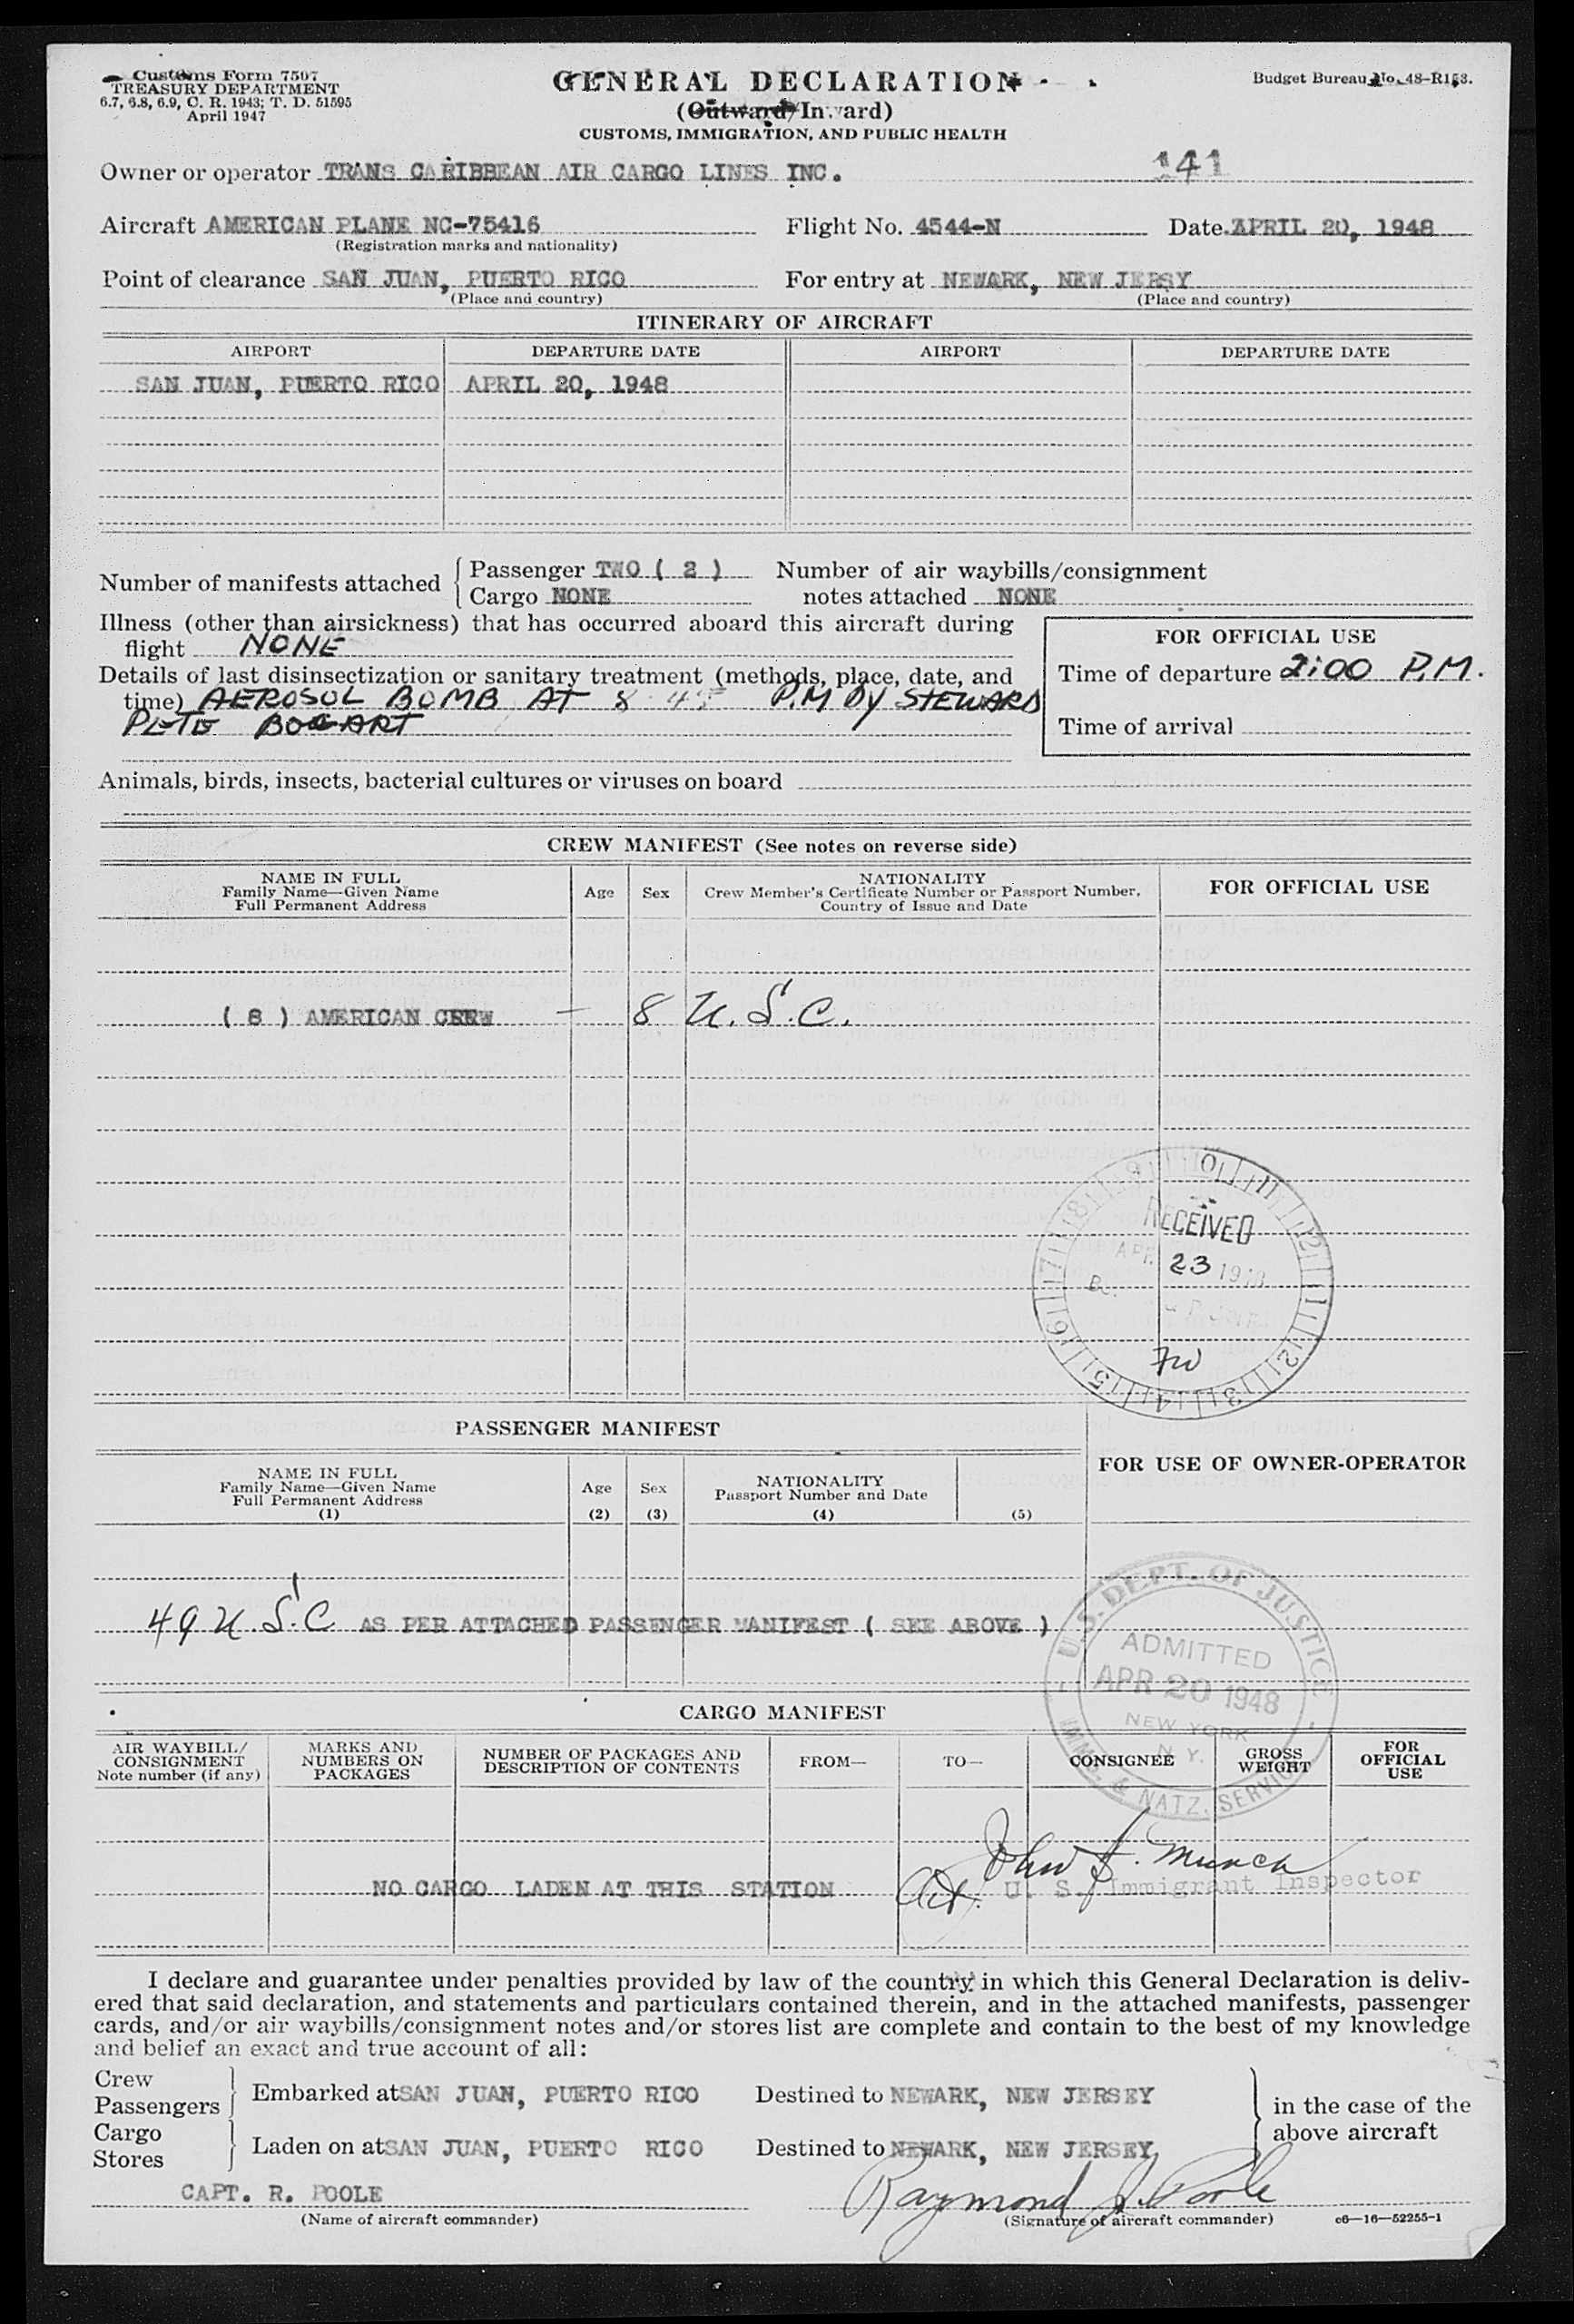 Customs Form 7507
TREASURY DEPARTMENT
6.7, 6.8, 6.9, C. R. 1943; T. D. 51595
April 1947
GENERAL DECLARATION
(Outward/Inward)
CUSTOMS, IMMIGRATION, AND PUBLIC HEALTH
Budget Bureau No. 48-R153.
Owner or operator TRANS CARIBBEAN AIR CARGO LINES INC. 141
Aircraft AMERICAN PLANE NC-75416 Flight No. 4544-N Date APRIL 20, 1948
(Registration marks and nationality)
Point of clearance SAN JUAN, PUERTO RICO For entry at NEWARK, NEW JERSY
(Place and country) (Place and country)
ITINERARY OF AIRCRAFT
AIRPORT DEPARTURE DATE AIRPORT DEPARTURE DATE
SAN JUAN, PUERTO RICO APRIL 20, 1948
Number of manifests attached Passenger TWO ( 2 ) Number of air waybills/consignment
Cargo NONE notes attached NONE
Illness (other than airsickness) that has occurred aboard this aircraft during
flight NONE
Details of last disinsectization or sanitary treatment (methods, place, date, and
time) AEROSOL BOMB AT 8 P.M BY STEWARD
PETE BOGART
FOR OFFICIAL USE
Time of departure 2:00 P.M.
Time of arrival
Animals, birds, insects, bacterial cultures or viruses on board
CREW MANIFEST (See notes on reverse side)
NAME IN FULL
Family Name—Given Name
Full Permanent Address
Age Sex
NATIONALITY
Crew Member's Certificate Number or Passport Number,
Country of Issue and Date
FOR OFFICIAL USE
( 8 ) AMERICAN CREW — 8 U.S.C.
9 10 11 12 1 2 3 4 5 6 7 8
RECEIVED
APR 23 1948
PASSENGER MANIFEST
FOR USE OF OWNER-OPERATOR
NAME IN FULL
Family Name—Given Name
Full Permanent Address
(1)
Age
(2)
Sex
(3)
NATIONALITY
Passport Number and Date
(4)
(5)
49 U S.C AS PER ATTACHED PASSENGER MANIFEST ( SEE ABOVE )
U. S. DEPT. OF JUSTICE
ADMITTED
APR 20 1948
NEW YORK
N. Y.
IMMG. & NATZ. SERVICE
CARGO MANIFEST
AIR WAYBILL/
CONSIGNMENT
Note number (if any)
MARKS AND
NUMBERS ON
PACKAGES
NUMBER OF PACKAGES AND
DESCRIPTION OF CONTENTS
FROM—
TO—
CONSIGNEE
GROSS
WEIGHT
FOR
OFFICIAL
USE
John F. Munch
NO CARGO LADEN AT THIS STATION Act. U. S. Immigrant Inspector
I declare and guarantee under penalties provided by law of the country in which this General Declaration is deliv-
ered that said declaration, and statements and particulars contained therein, and in the attached manifests, passenger
cards, and/or air waybills/consignment notes and/or stores list are complete and contain to the best of my knowledge
and belief an exact and true account of all:
Crew
Passengers
Embarked at SAN JUAN, PUERTO RICO Destined to NEWARK, NEW JERSEY
Cargo
Stores
Laden on at SAN JUAN, PUERTO RICO Destined to NEWARK, NEW JERSEY
in the case of the
above aircraft
CAPT. R. POOLE Raymond J. Poole
(Name of aircraft commander) (Signature of aircraft commander) c6—16—52255-1